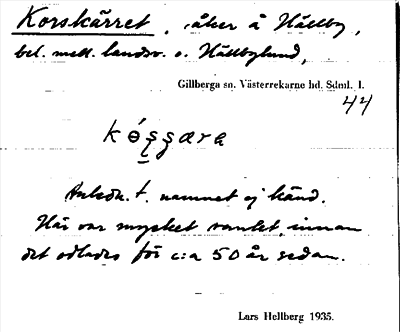 Korskärret, åker å Hällby,
bel. mell. landsv. o. Hällbylund,
Gillberga sn. Västerrekarne hd. Sdml. l.
44
Anledn. t. namnet ej känd.
Här var mycket vanlet, innan
det odlades för c:a 50 år sedan.
Lars Hellberg 1935.